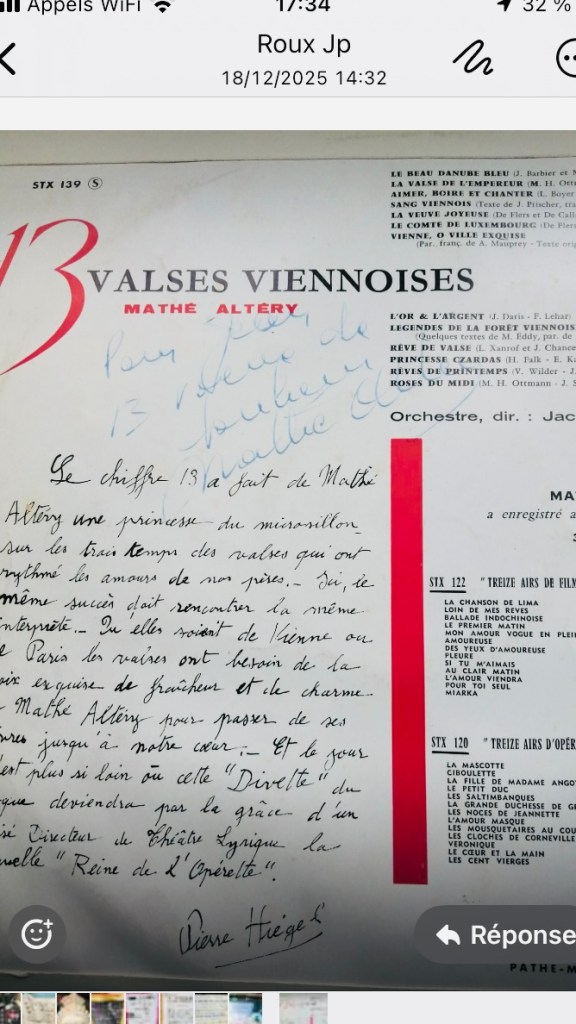 Appels WiFi 17:34 32 %
Roux Jp
18/12/2025 14:32
STX 139 S
13 VALSES VIENNOISES
MATHÉ ALTÉRY
Pour
13 Valses de
bonheur
Mathé
LE BEAU DANUBE BLEU (J. Barbier et
LA VALSE DE L'EMPEREUR (M. H. Ott
AIMER, BOIRE ET CHANTER (L. Boyer
SANG VIENNOIS (Texte de J. Prischer, tra
LA VEUVE JOYEUSE (De Flers et De Calla
LE COMTE DE LUXEMBOURG (De Flers
VIENNE, O VILLE EXQUISE
(Par. franç. de A. Mauprey - Texte orig
L'OR & L'ARGENT (J. Daris - F. Lehar)
LEGENDES DE LA FORÊT VIENNOIS
(Quelques textes de M. Eddy, par. de
RÊVE DE VALSE (L. Xanrof et J. Chance
PRINCESSE CZARDAS (H. Palk - E. Ka
RÊVES DE PRINTEMPS (V. Wilder - J.
ROSES DU MIDI (M. H. Ottmann - J. S
Orchestre, dir. : Jac
Le chiffre 13 a fait de Mathé
Altéry une princesse du microsillon
sur les trois temps des valses qui ont
rythmé les amours de nos pères.- Ici, le
même succès doit rencontrer la même
interprète.- Qu'elles soient de Vienne ou
e Paris les valses ont besoin de la
oix exquise de fraîcheur et de charme
Mathé Altéry pour passer de ses
jusqu'à notre cœur.- Et le jour
'est plus si loin où cette "Divette" du
que deviendra par la grâce d'un
sé Directeur de Théâtre Lyrique la
uvelle "Reine de L'Opérette".
Pierre Hiégel
MA
a enregistré a
STX 122 "TREIZE AIRS DE FILM
LA CHANSON DE LIMA
LOIN DE MES REVES
BALLADE INDOCHINOISE
LE PREMIER MATIN
MON AMOUR VOGUE EN PLEI
AMOUREUSE
DES YEUX D'AMOUREUSE
PLEURE
SI TU M'AIMAIS
AU CLAIR MATIN
L'AMOUR VIENDRA
POUR TOI SEUL
MIARKA
STX 120 "TREIZE AIRS D'OPÉR
LA MASCOTTE
CIBOULETTE
LA FILLE DE MADAME ANGO
LE PETIT DUC
LES SALTIMBANQUES
LA GRANDE DUCHESSE DE GE
LES NOCES DE JEANNETTE
L'AMOUR MASQUE
LES MOUSQUETAIRES AU COU
LES CLOCHES DE CORNEVILLE
VERONIQUE
LE CŒUR ET LA MAIN
LES CENT VIERGES
Réponse
PATHE-M